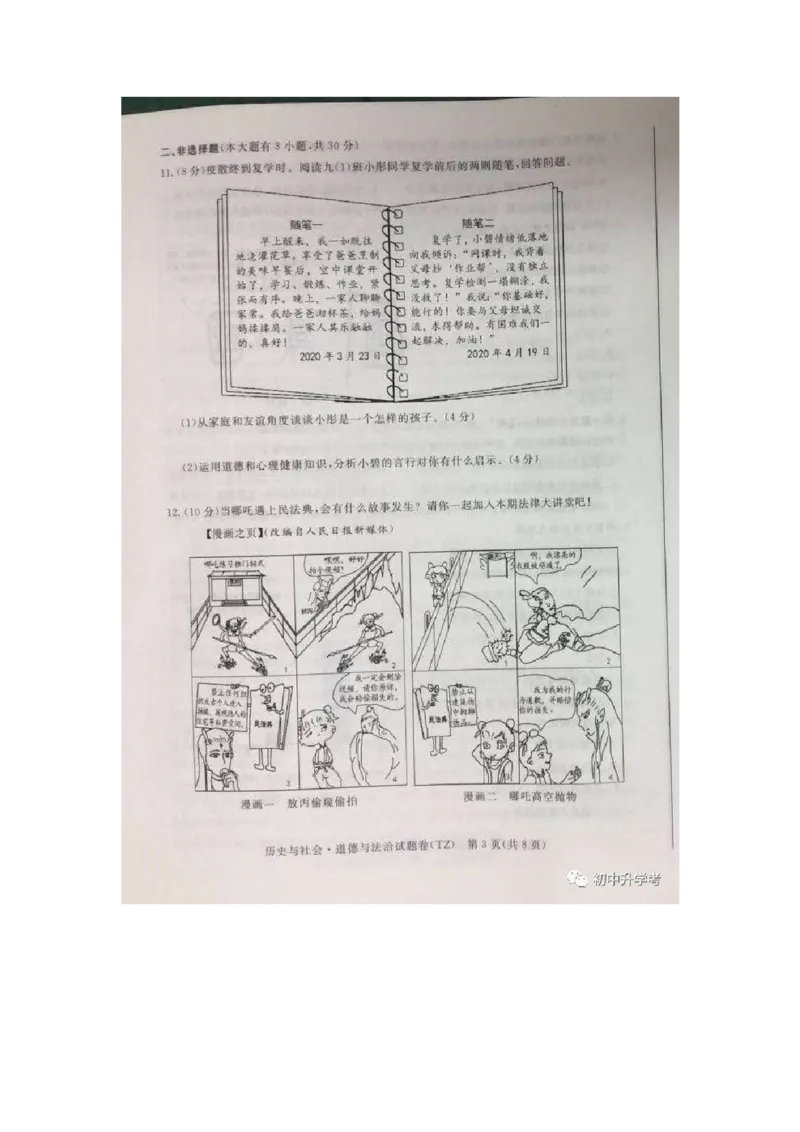 二、非选择题(本大题有3小题,共30分)
11.(8分)疫散终到复学时。阅读九(1)班小彤同学复学前后的两则随笔,回答问题。
随笔一
早上醒来,我一如既往
地浇灌花草。享受了爸爸烹制
的美味早餐后,空中课堂开
始了,学习、锻炼、作业,紧
张而有序。晚上,一家人聊聊
家常。我给爸爸沏杯茶,给妈
妈揉揉肩。一家人其乐融融
的,真好!
2020年3月23日
随笔二
复学了,小碧情绪低落地
向我倾诉:“网课时,我背着
父母抄‘作业帮’,没有独立
思考。复学检测一塌糊涂,我
没救了!”我说:“你基础好,
能行的!你要与父母坦诚交
流,求得帮助。有困难我们一
起解决,加油!”
2020年4月19日
(1)从家庭和友谊角度谈谈小彤是一个怎样的孩子。(4分)
(2)运用道德和心理健康知识,分析小碧的言行对你有什么启示。(4分)
12.(10分)当哪吒遇上民法典,会有什么故事发生?请你一起加入本期法律大讲堂吧!
【漫画之页】(改编自人民日报新媒体)
哪吒练习独门招式
1
嘿嘿,好好
拍个视频!
2
禁止任何组
织或者个人进入、
拍摄、窥视他人的
住宅等私密空间。
民法典
3
我一定会删除
视频,请你原谅,
我会赔偿损失的。
4
漫画一 敖丙偷窥偷拍
1
啊,我漂亮的
衣服被砸破了
2
禁止从
建筑物
中抛掷
物品。
民法典
3
我为我的行
为道歉,并赔偿
你的损失。
4
漫画二 哪吒高空抛物
历史与社会·道德与法治试题卷(TZ) 第3页(共8页)
初中升学考